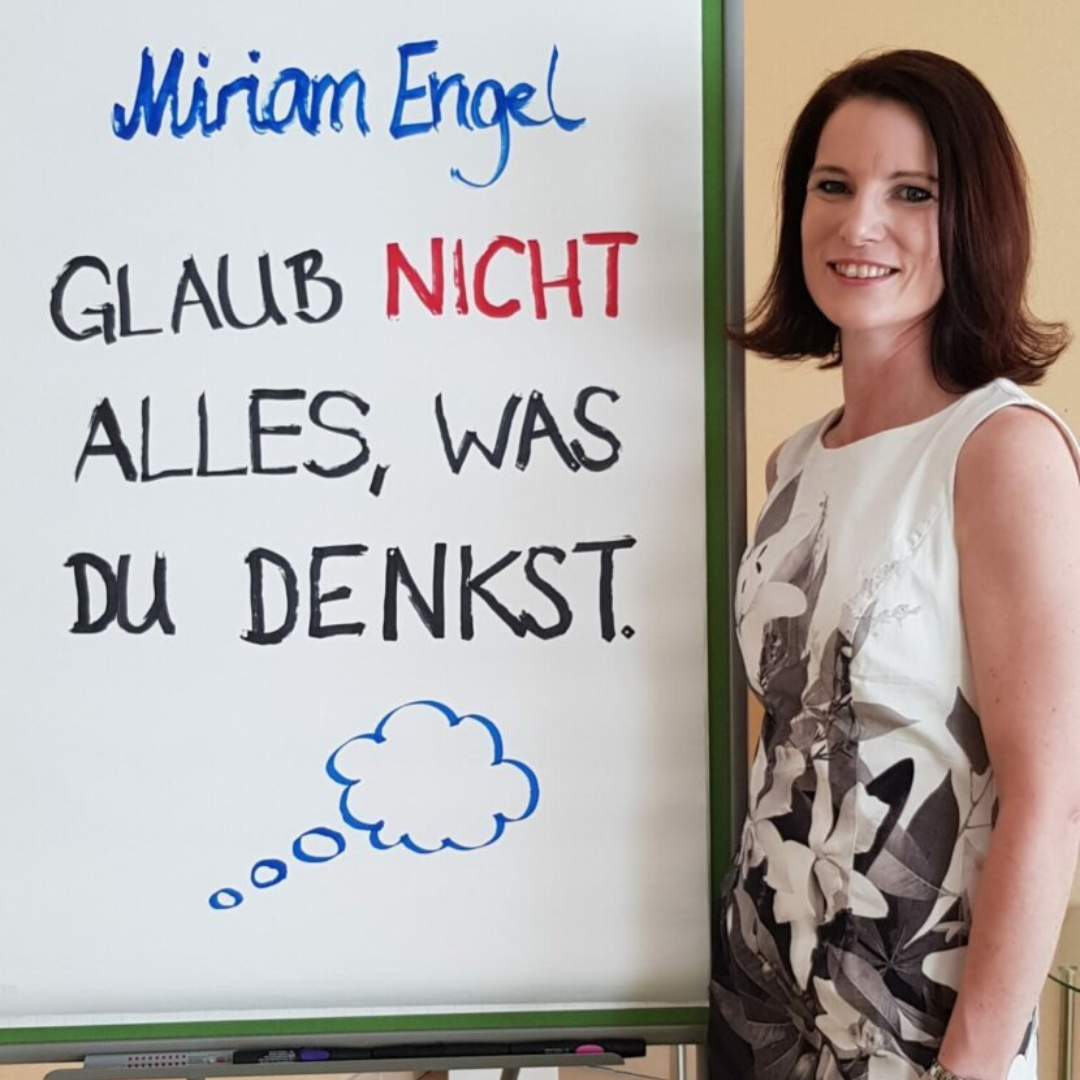 Miriam Engel
GLAUB NICHT
ALLES, WAS
DU DENKST.